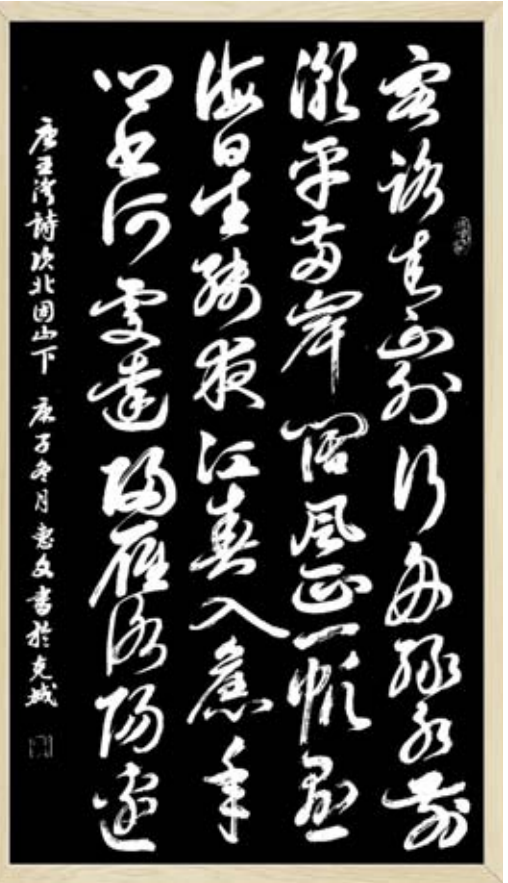 客路青山外行舟綠水前
潮平兩岸闊風正一帆懸
海日生殘夜江春入舊年
鄉書何處達歸雁洛陽邊
唐王灣詩次北固山下 庚子冬月惠文書於克城